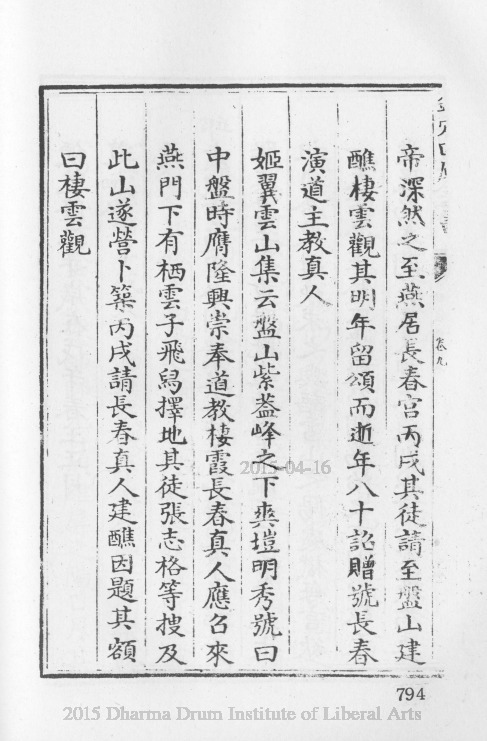 帝深然之至燕居長春宮丙戌其徒請至盤山建
醮棲雲觀其明年留頌而逝年八十詔贈號長春
演道主教真人
姬翼雲山集云盤山紫蓋峰之下爽塏明秀號曰
中盤時膺隆興崇奉道教棲霞長春真人應召來
燕門下有栖雲子飛舄擇地其徒張志格等搜及
此山遂營卜築丙戌請長春真人建醮因題其額
曰棲雲觀
卷九
2015-04-16
794
2015 Dharma Drum Institute of Liberal Arts